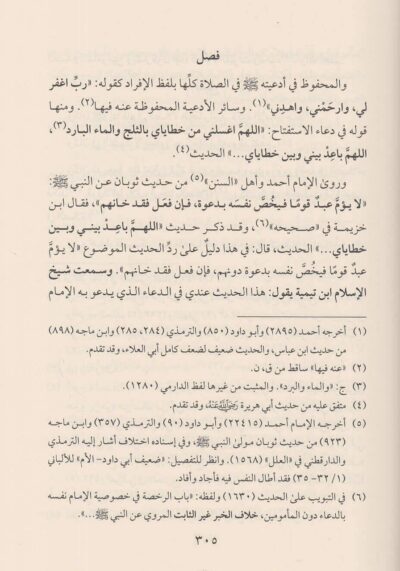 فصل
والمحفوظ في أدعيته ﷺ في الصلاة كلِّها بلفظ الإفراد كقوله: «ربِّ اغفر
لي، وارحَمْني، واهدِني»(١). وسائر الأدعية المحفوظة عنه فيها(٢). ومنها
قوله في دعاء الاستفتاح: «اللهمَّ اغسلني من خطاياي بالثلج والماء البارد(٣)،
اللهمَّ باعِدْ بيني وبين خطاياي...» الحديث(٤).
وروى الإمام أحمد وأهل «السنن»(٥) من حديث ثوبان عن النبي ﷺ:
«لا يؤمَّ عبدٌ قومًا فيخُصَّ نفسَه بدعوة، فإن فعل فقد خانهم»، فقال ابن
خزيمة في «صحيحه»(٦)، وقد ذكر حديث «اللهمَّ باعِدْ بيني وبين
خطاياي...» الحديث، قال: في هذا دليلٌ على ردِّ الحديث الموضوع «لا يؤمَّ
عبدٌ قومًا فيخُصَّ نفسَه بدعوة دونهم، فإن فعل فقد خانهم». وسمعت شيخ
الإسلام ابن تيمية يقول: هذا الحديث عندي في الدعاء الذي يدعو به الإمام
(١) أخرجه أحمد (٢٨٩٥) وأبو داود (٨٥٠) والترمذي (٢٨٤، ٢٨٥) وابن ماجه (٨٩٨)
من حديث ابن عباس، والحديث ضعيف لضعف كامل أبي العلاء، وقد تقدم.
(٢) «عنه فيها» ساقط من ق، ن.
(٣) ج: «والماء والبرد». والمثبت من غيرها لفظ الدارمي (١٢٨٠).
(٤) متفق عليه من حديث أبي هريرة رَضِيَ اللَّهُ عَنْهُ، وقد تقدم.
(٥) أخرجه الإمام أحمد (٢٢٤١٥) وأبو داود (٩٠) والترمذي (٣٥٧) وابن ماجه
(٩٢٣) من حديث ثوبان مولى النبي ﷺ، وفي إسناده اختلاف أشار إليه الترمذي
والدارقطني في «العلل» (١٥٦٨). وانظر للتفصيل: «ضعيف أبي داود- الأم» للألباني
(١/ ٣٢- ٣٥) فقد أطال النفس فيه فأجاد وأفاد.
(٦) في التبويب على الحديث (١٦٣٠) ولفظه: «باب الرخصة في خصوصية الإمام نفسه
بالدعاء دون المأمومين، خلاف الخبر غير الثابت المروي عن النبي ﷺ...».
٣٠٥